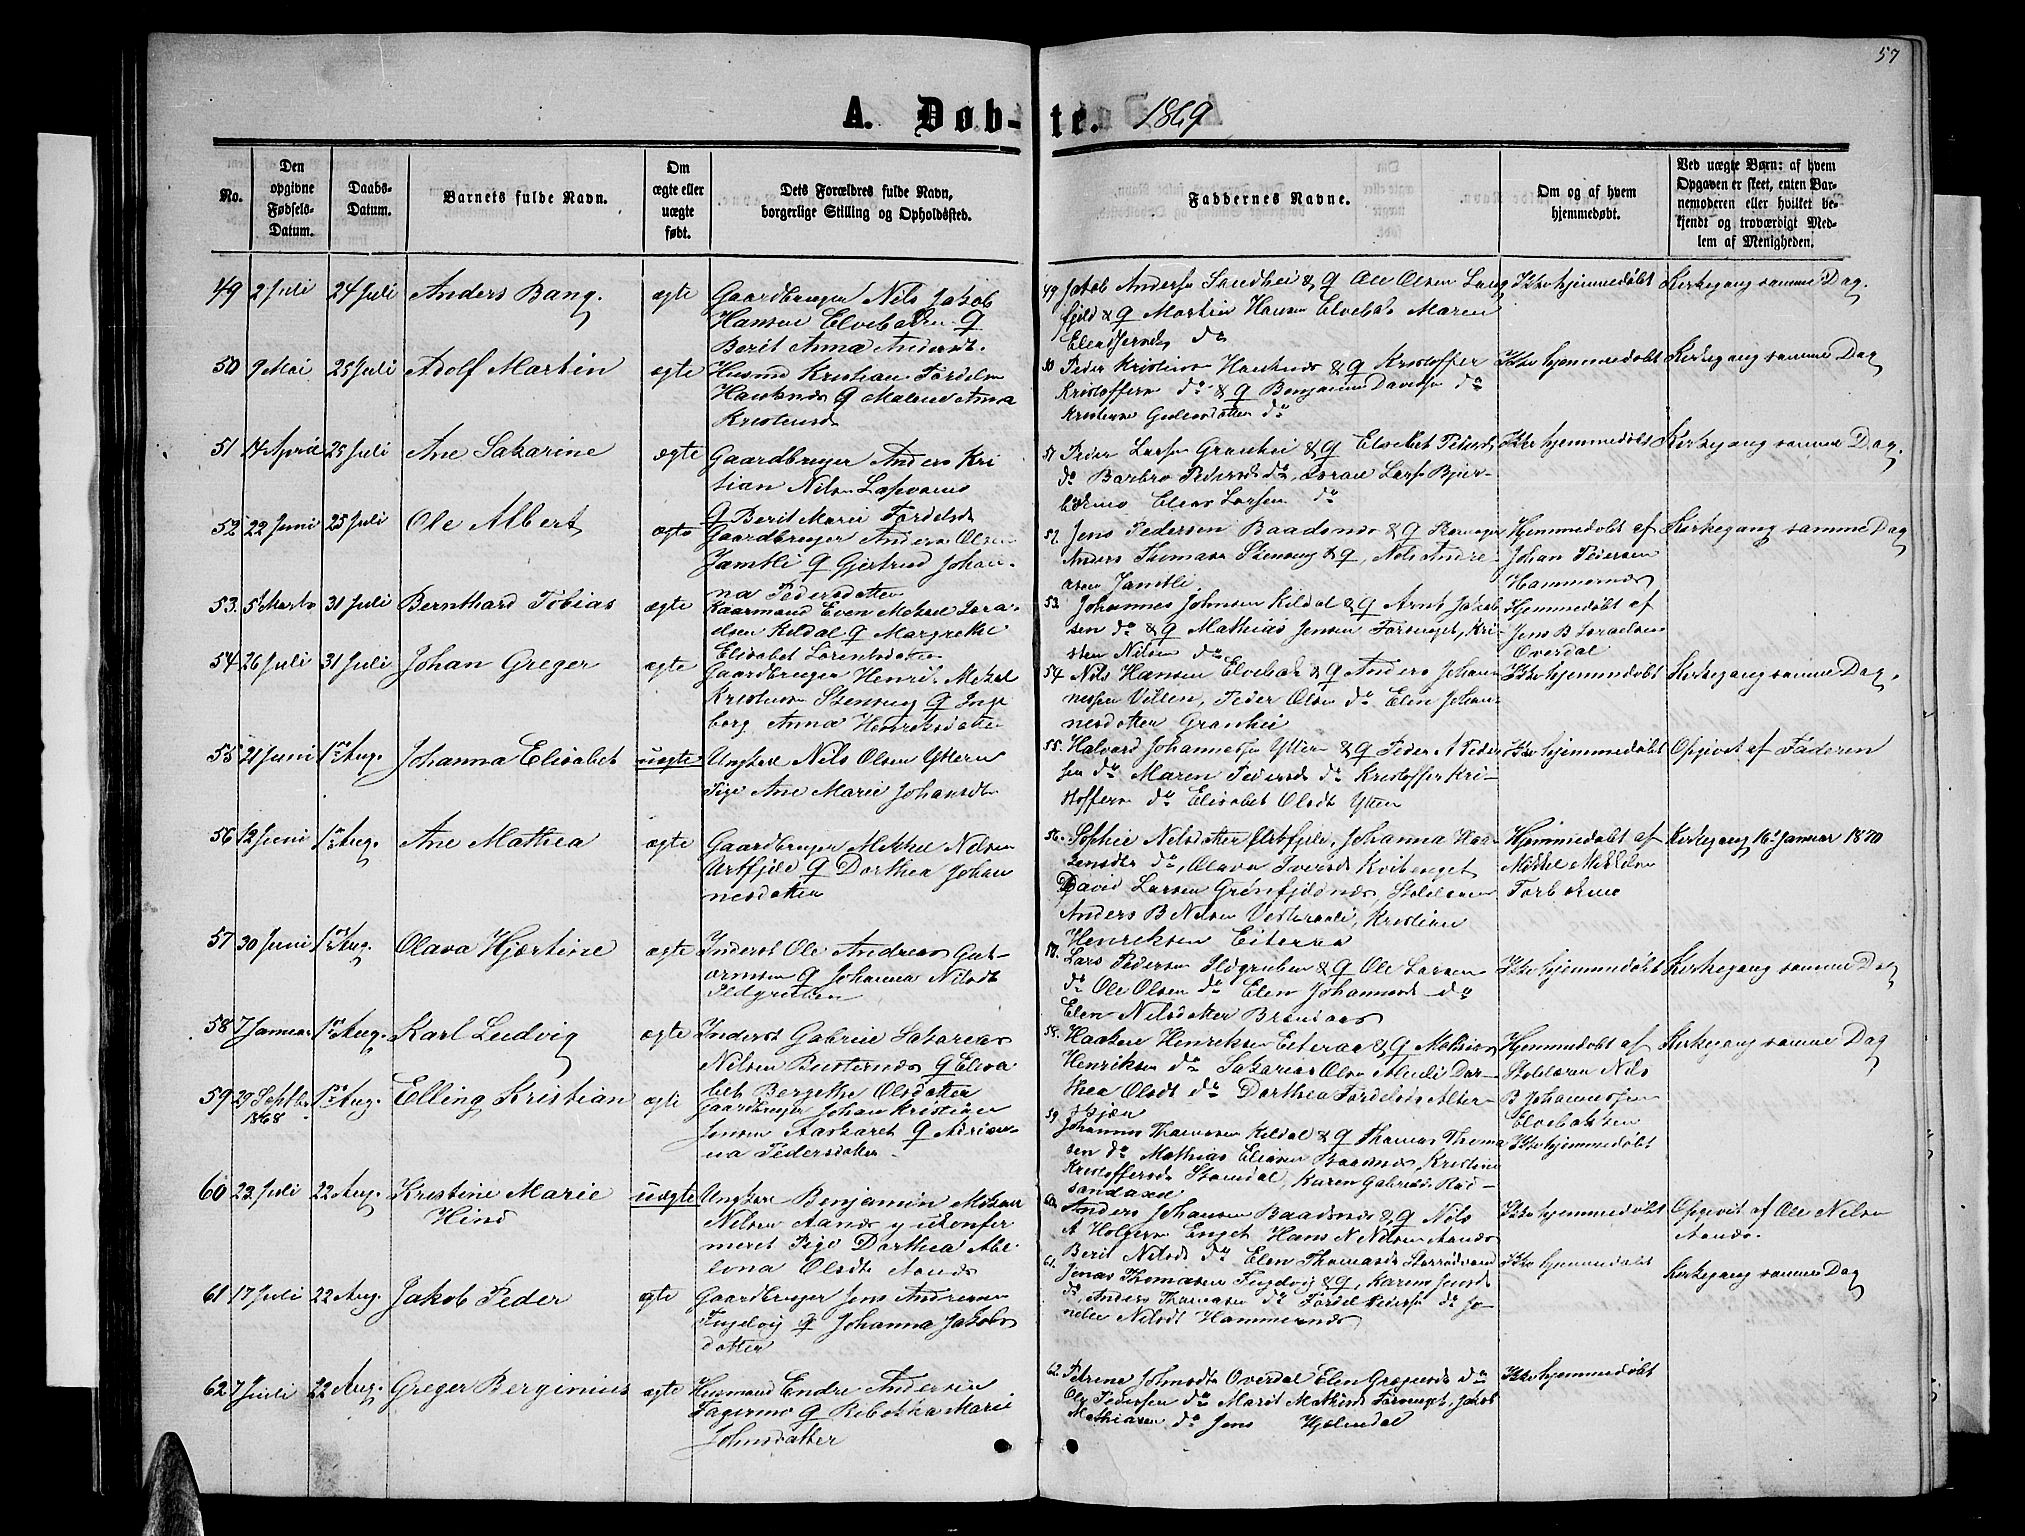 57
A. Døb-te. 1869
No.
Den opgivne Fødsels-Datum.
Daabs-Datum.
Barnets fulde Navn.
Om ægte eller uægte født.
Dets Forældres fulde Navn, borgerlige Stilling og Opholdssted.
Faddernes Navne.
Om og af hvem hjemmedøbt.
Ved uægte Børn: af hvem Opgaven er skeet, enten Barnemoderen eller hvilket bekjendt og troværdigt Medlem af Menigheden.
49 2 Juli 24 Juli Anders Bang. ægte Gaardbruger Nils Jakob
Hansen Elvebakken &
Berit Anna Andersdt.
49 Jakob Anderss Sandhei & Ole Olsen Lang
fjeld & Martin Hansen Elvebak Maren
do
Ikke hjemmedøbt Kirkegang samme Dag.
50 9 Mai 25 Juli Adolf Martin ægte Husmd Kristian Fordelsen
Hauknes & Malene Anna
Kristensd
50 Peder Kristians Hauknes & Kristoffer
Kristoffersn do & Benjamin Davidsn do
do
Ikke hjemmedøbt Kirkegang samme Dag
51 14 April 25 Juli Ane Sakarine ægte Gaardbruger Anders Kri
stian Nilsen
& Berit Marie Fordelsd
51 Peder Larsn Granhei & Elsebet Pedersd
do Barbro Pedersd do, Larsn Bjer-
Elias Larsen do
Ikke hjemmedøbt Kirkegang samme Dag.
52 22 Juni 25 Juli Ole Albert ægte Gaardbruger Anders Olsen
Jamtli & Gjertrud Johan-
na Pedersdatter
52. Jens Pedersen Baadsnes &
Anders Thomasn Stensung & Nils Andre-
asen Jamtli
Hjemmedøbt af
Johan Pedersen
Hammernæs
Kirkegang samme Dag
53. 5 Marts 31 Juli Bernthard Tobias ægte Kaarmand Even Mekal Isra-
elsen Kildal & Margrethe
Elisabet Lorentsdatter
53. Johannes Johnsen Kildal & Arnt Jakob
sen do & Mathias Jensen Forsenget, Kri-
sten Nilsen do
Hjemmedøbt af
Jens B Israelsen
Overdal
54 26 Juli 31 Juli Johan Greger ægte Gaardbruger Henrik Mekal
Kristensn Stensung & Inge
borg Anna Henriksdatter
54 Nils Hansen Elvebak & Anders Johan
nessen Villen, Peder Olsn do Elen Johan
nesdatter Granhei
Ikke hjemmedøbt Kirkegang samme Dag.
55 21 Juni 1ste Aug. Johanna Elisabet uægte Ungkarl Nils Olsen Ytteren
Pige Ane Marie Johansdt
55. Halvard Johannessn Ytter & Peder A Peder
sen do Maren Pedersd do Kristoffer Kri-
stoffersn do Elisabet Olsdt Ytter
Ikke hjemmedøbt Opgivet af Faderen
56 12 Juni 1ste Aug. Ane Mathea ægte Gaardbruger Mikkel Nilsen
Urtfjeld & Dorthea Johan
nesdatter
56. Sophie Nilsdatter Urtfjeld, Johanna Haa-
kensdtr do, Olava Iversd Kvitneget
David Larsen Grønfjeldnæs, Skolelærer
Anders B Nilsen Vesteraali, Kristian
Henriksen Eiteraa
Hjemmedøbt af
Mikkel Mikkelsn
Forbakmo
Kirkegang 16de Januar 1870
57 30 Juni 1ste Aug. Olava Hjørtine ægte Inderst Ole Andreas Gut-
ormsen & Johanna Nilsdt
Ildgruben
57. Lars Pedersen Ildgruben & Ole Larsen
do Ole Olsen do Elen Johannesd do
Elen Nilsdatter
Ikke hjemmedøbt Kirkegang samme Dag
58 7 Januar 1ste Aug. Karl Ludvig ægte Inderst Gabriel Sakarias
Nilsen Bustnes & Elisa
bet Bergithe Olsdatter
58. Haaken Henriksen Eiteraa & Mathias
Henriksen do Sakarias Olsen Dor-
thea Olsdt do Dorthea Fordelsd Alter-
skjær
Hjemmedøbt af
Skolelærer Nils
B Johannessen
Elvebakken
Kirkegang samme Dag
59 29 Septbr 1868 1ste Aug. Elling Kristian ægte Gaardbruger Johan Kristian
Jensen & Adrian-
na Pedersdatter
59 Johannes Thomassen Kildal & Thomas Thoma
sen do Mathias Eliasen Baadsnes Kristine
Kristoffersd Storudal, Karen Gabrielsd Rød-
sandaasen
Ikke hjemmedøbt
60 22 Juli 22 Aug. Kristine Marie
Hind
uægte Ungkarl Benjamin Mikal
Nilsen Aanæs y ukonfir
meret Pige Dorthea Abe-
lona Olsdt Aanæs
60. Anders Johansen Baadsnes & Nils
A Holgersn Enget Hans N Nilsen Aanæs
Berit Nilsd do Elen Thomasd
Ikke hjemmedøbt Opgivet af Ole Nilsn
Aanæs.
61 17 Juli 22 Aug. Jakob Peder ægte Gaardbruger Jens Andreas
& Johanna Jakobs
datter
61. Jonas Thomasen & Karen Jensd
do, Anders Thomasen do Fordel Pedersn do Jo-
Nilsdt Hammernæs
Ikke hjemmedøbt Kirkegang samme Dag
62 7 Juli 22 Aug. Greger Berginius ægte Husmand Endre Andersen
Fagermo & Rebekka Marie
Johnsdatter
62. Petrine Johnsdt Overdal Elen Gregusd do
Ole Pedersen do Marit Mathisd Forsenget, Jakob
Mathiasen do Jens Hjelmdal
Ikke hjemmedøbt